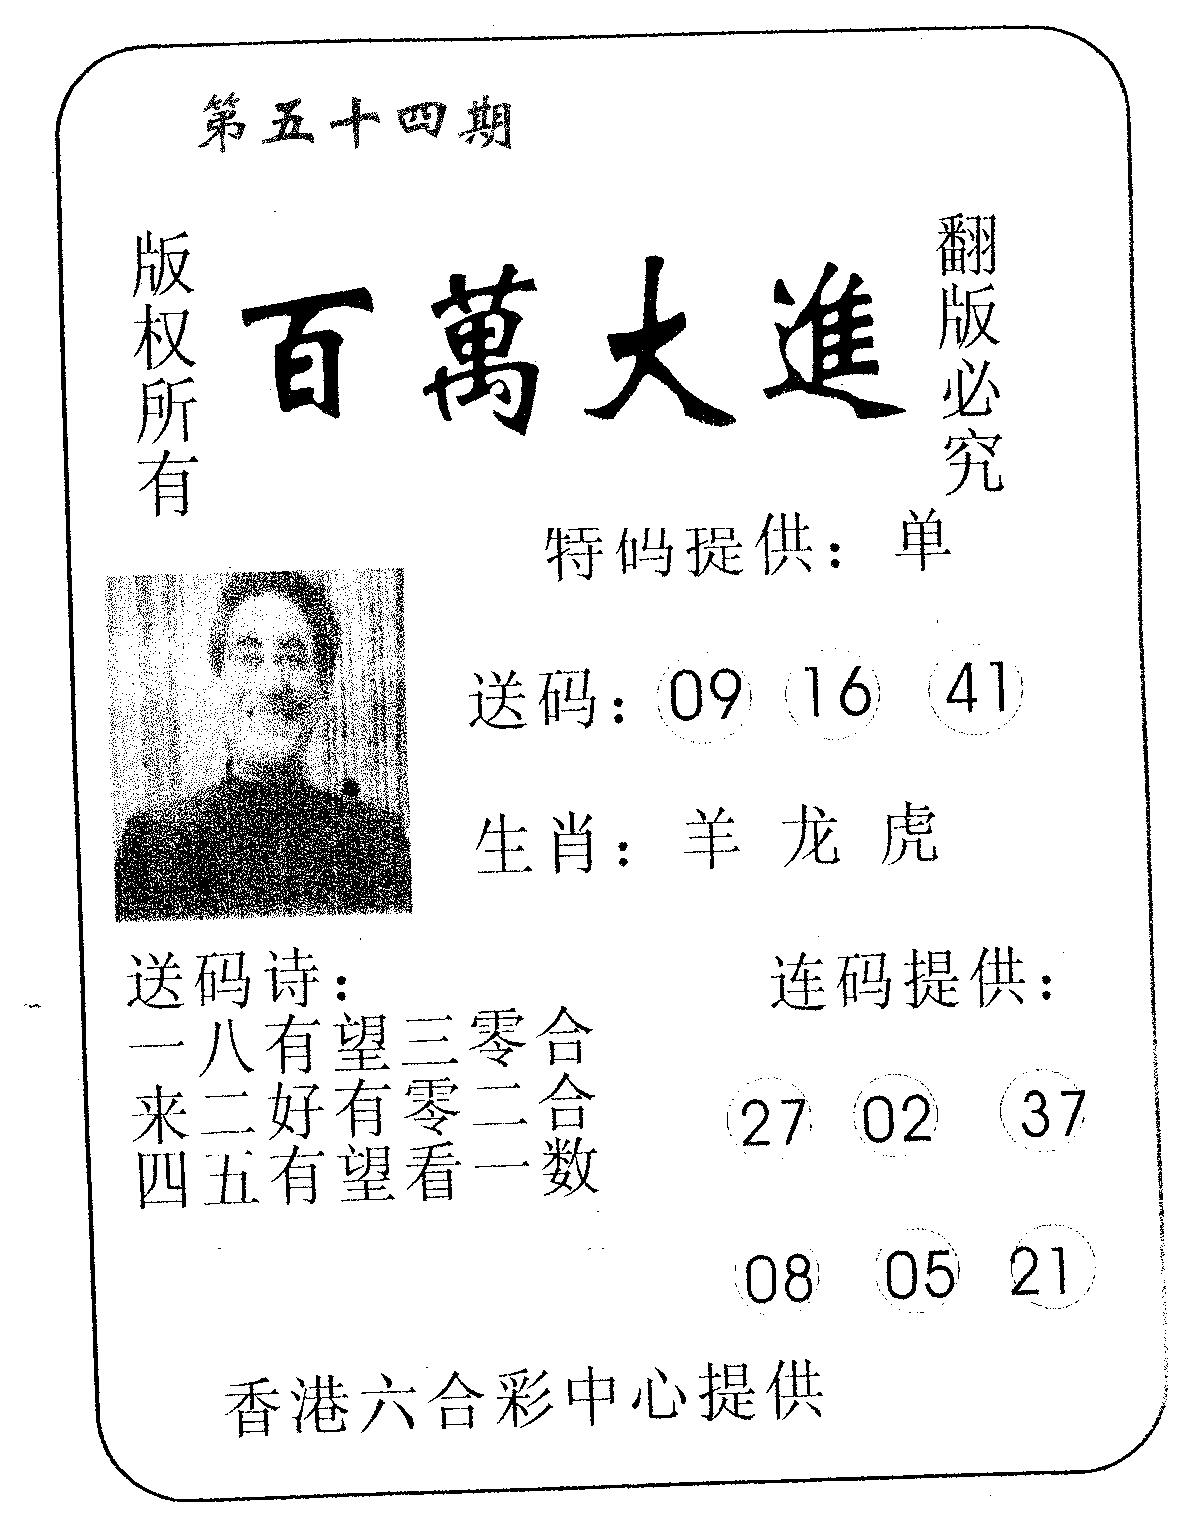 第五十四期
版权所有
百萬大進
翻版必究
特码提供：单
送码：09 16 41
生肖：羊 龙 虎
送码诗：
一八有望三零合
来二好有零二合
四五有望看一数
连码提供：
27 02 37
08 05 21
香港六合彩中心提供